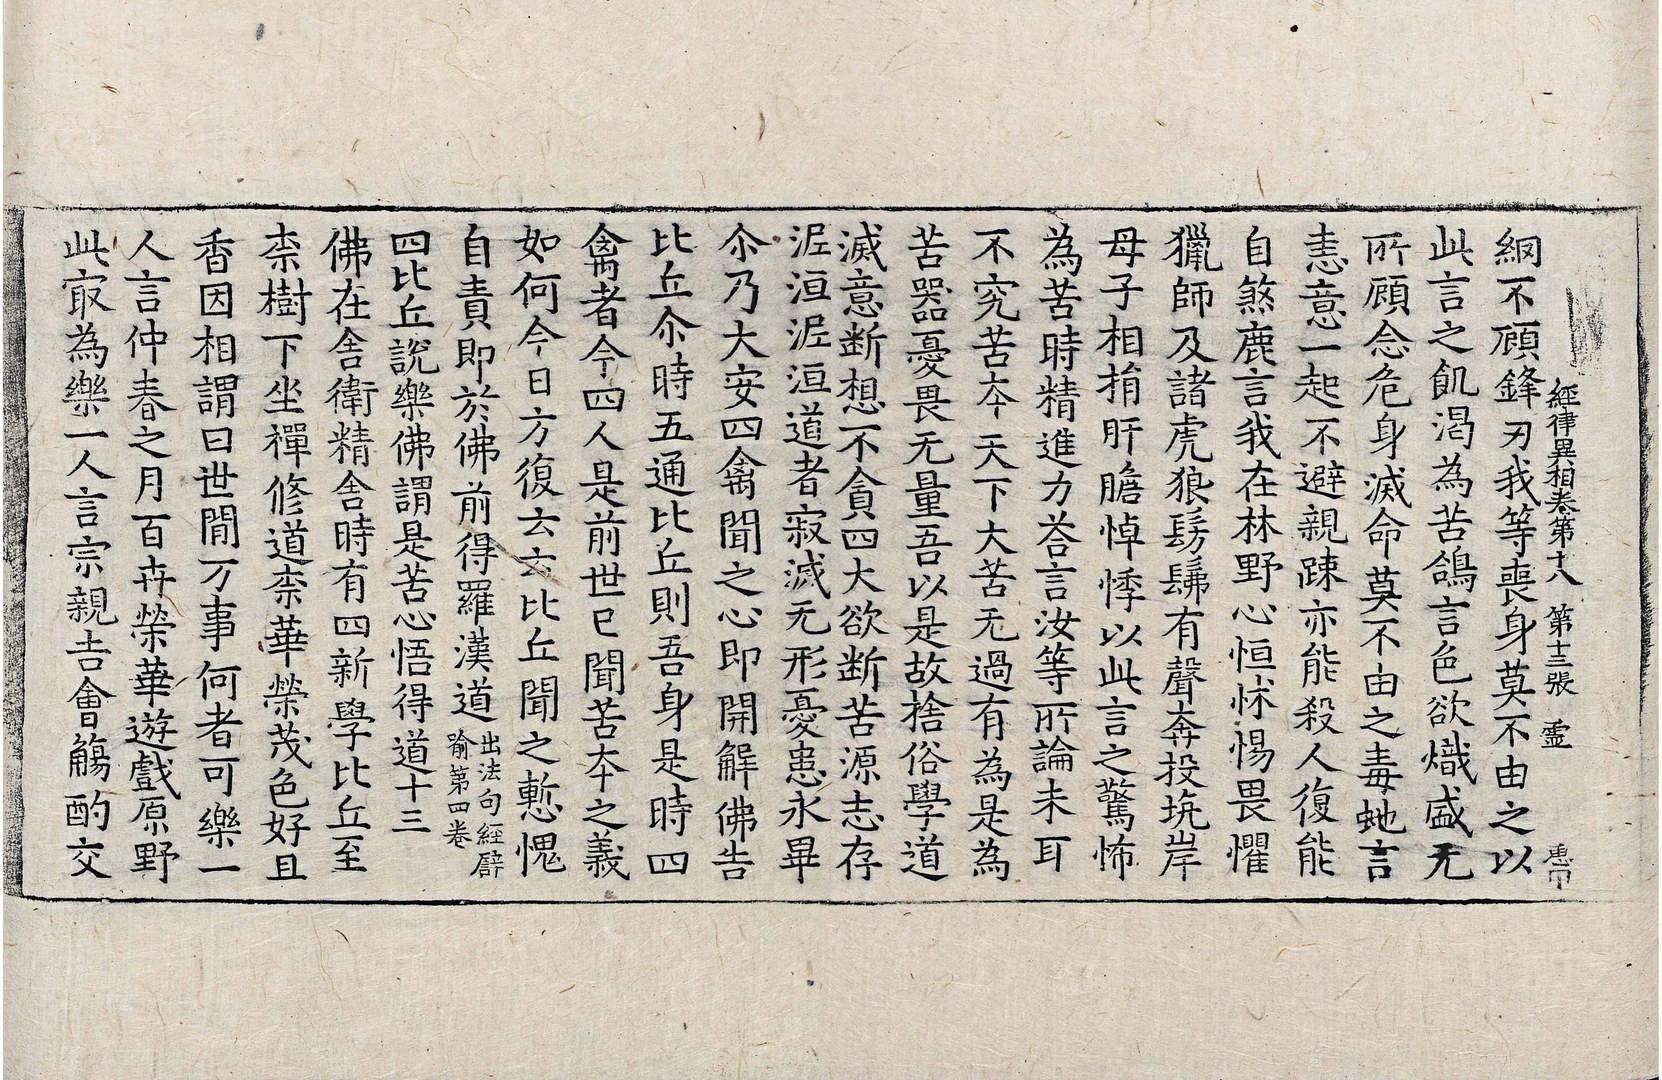 經律異相卷第十八 第十三張 霊
網不顧鋒刃我等喪身莫不由之以
此言之飢渴為苦鴿言色欲熾盛无
所顧念危身滅命莫不由之毒虵言
恚意一起不避親踈亦能殺人復能
自煞鹿言我在林野心恒怵惕畏懼
獵師及諸虎狼髣髴有聲奔投坑岸
母子相捐肝膽悼悸以此言之驚怖
為苦時精進力荅言汝等所論未耳
不究苦夲天下大苦无過有為是為
苦器憂畏无量吾以是故捨俗學道
滅意断想不貪四大欲断苦源志存
泥洹泥洹道者寂滅无形憂患永畢
尒乃大安四禽聞之心即開解佛告
比丘尒時五通比丘則吾身是時四
禽者今四人是前世已聞苦夲之義
如何今日方復云云比丘聞之慙愧
自責即於佛前得羅漢道出法句經譬喻第四卷
四比丘說樂佛謂是苦心悟得道十三
佛在舍衛精舍時有四新學比丘至
柰樹下坐禪修道柰華榮茂色好且
香因相謂曰世間万事何者可樂一
人言仲春之月百卉榮華遊戲原野
此㝡為樂一人言宗親吉會觴酌交